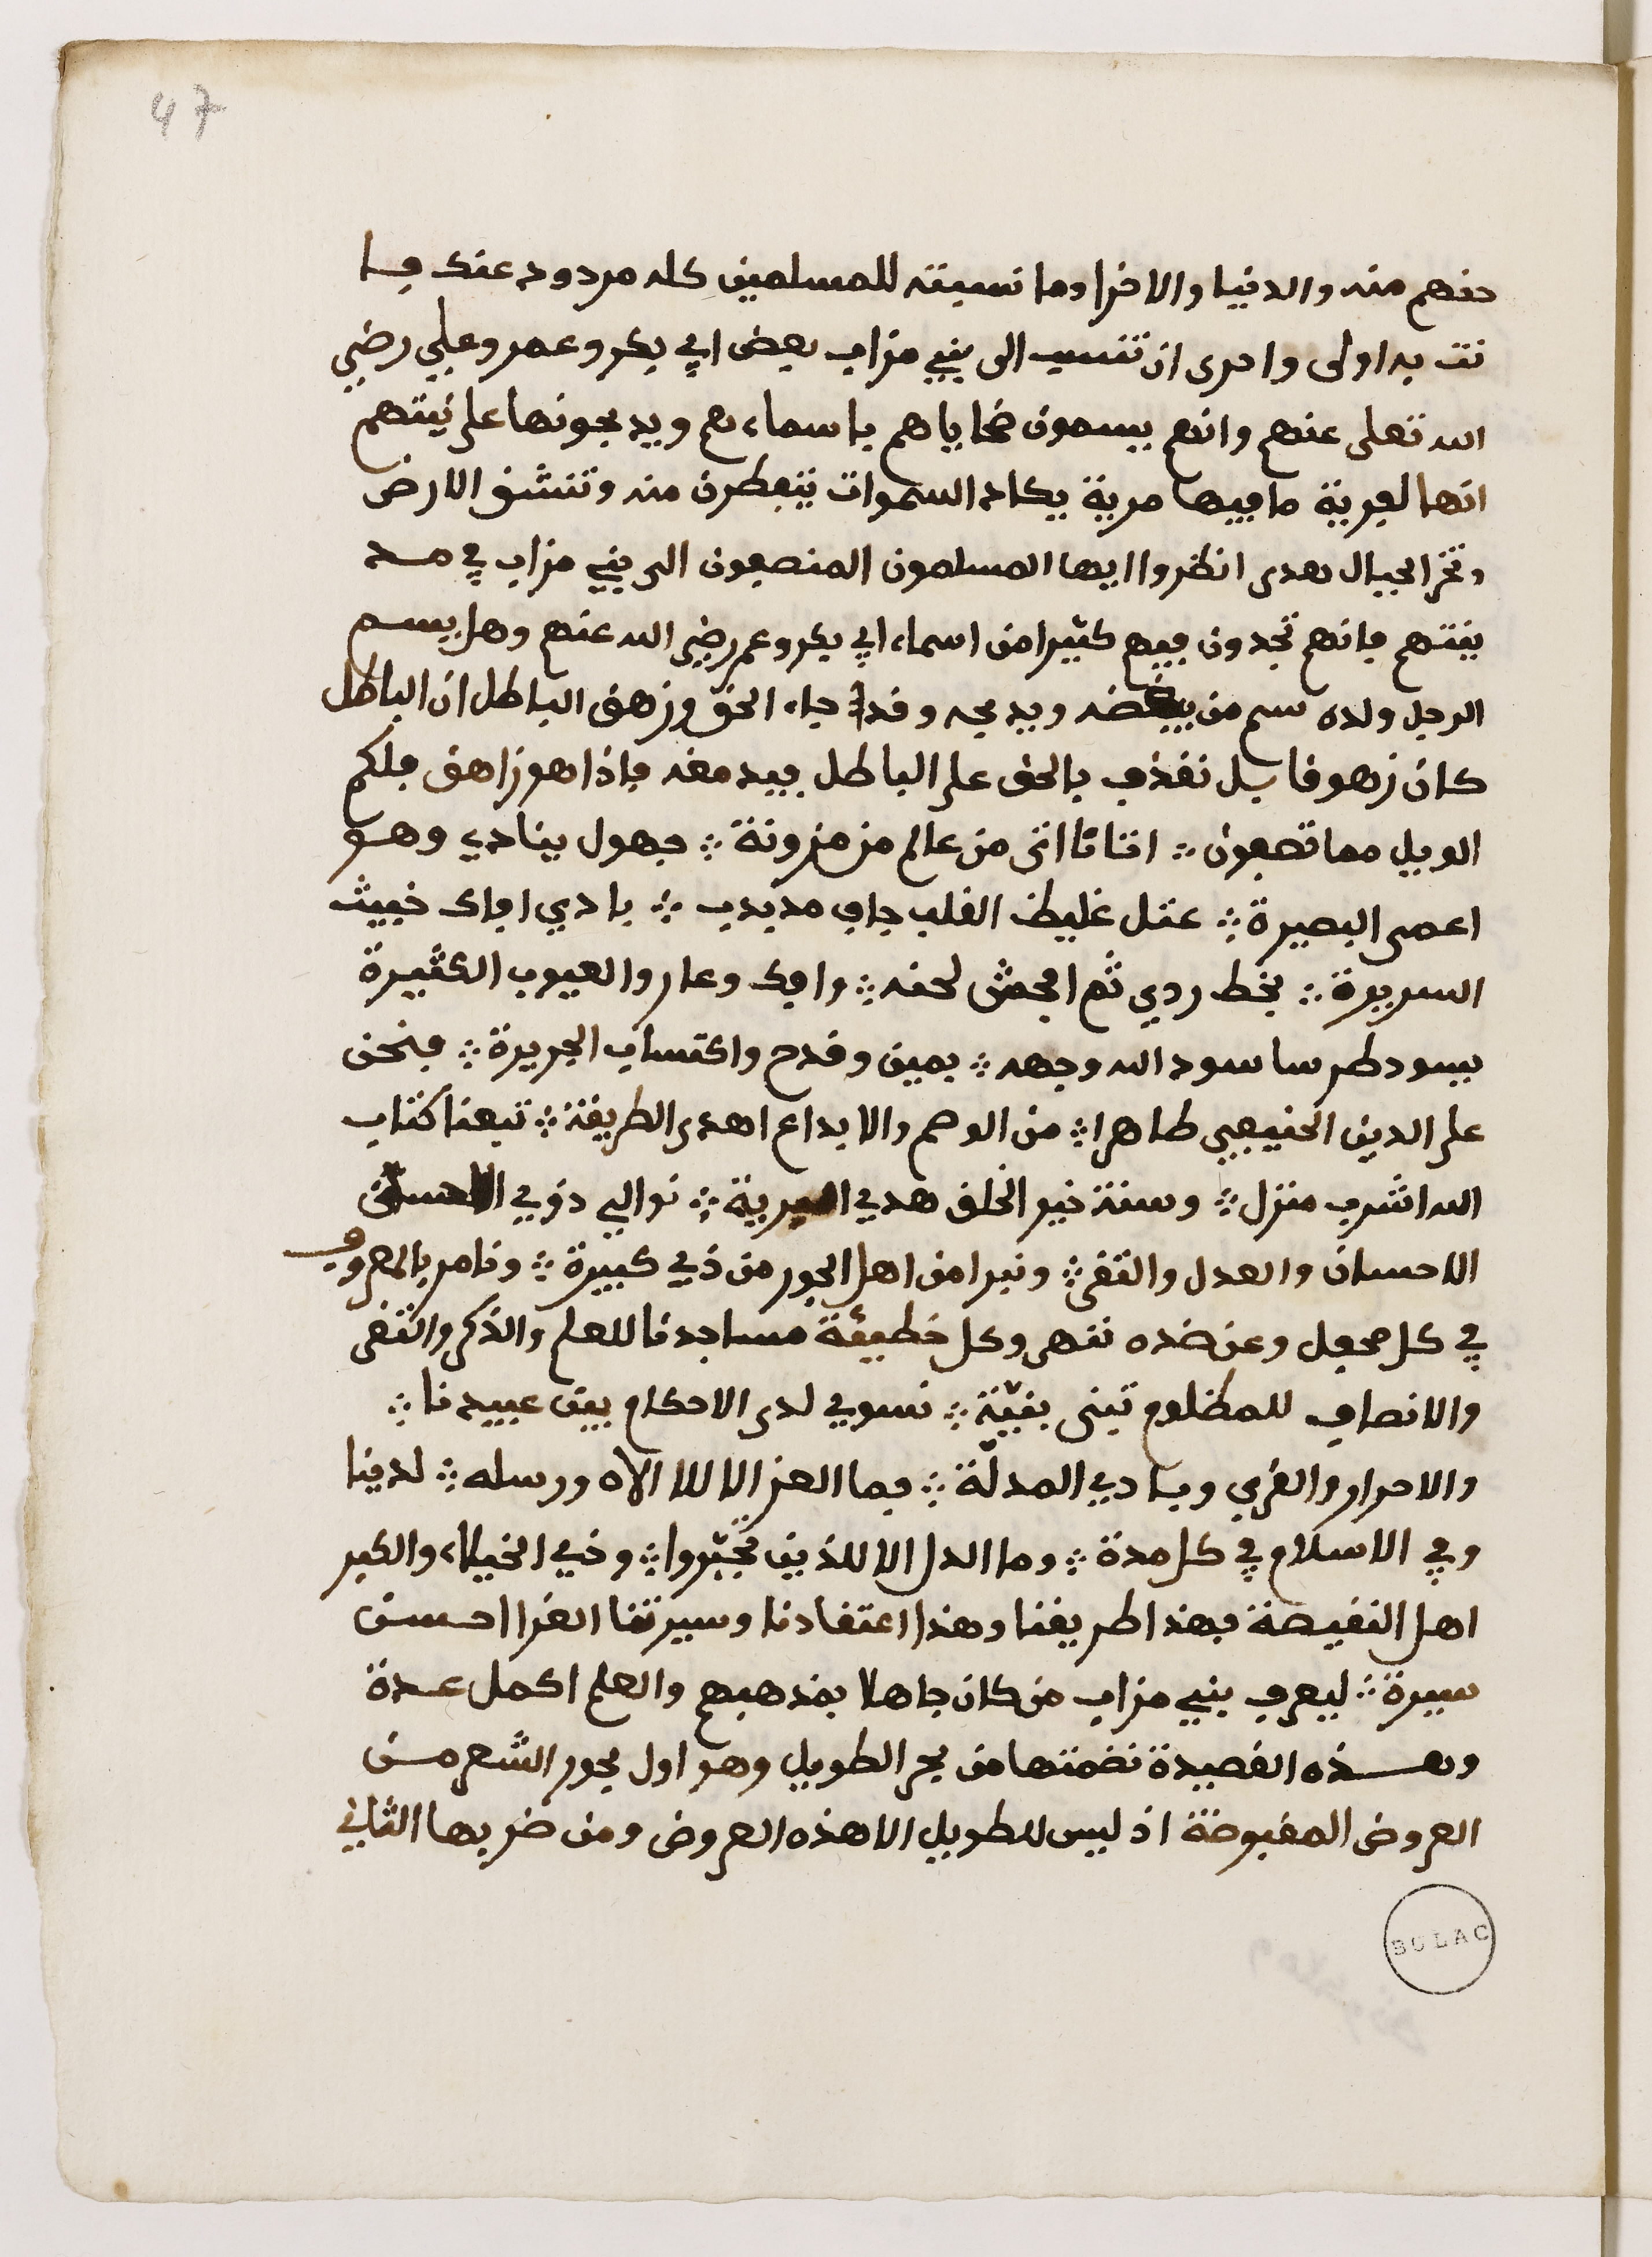 47
حقهم منه والدنيا والاخرا وما نسبته للمسلمين كله مردود عنك فا
نت به اولى واحرى ان تنسب الى بني مزاب بعض ابي بكر وعمر وعلي رضي
الله تعلى عنهم وانهم يسمون ضحاياهم باسماءهم ويذبحونها على نيتهم
انها لفرية ما فيها مرية يكاد السموات يتفطرن منه وتنشق الارض
وتخر الجبال هدى انظروا ايها المسلمون المنصفون الى بني مزاب في مد
ينتهم فانهم تجدون فيهم كثيرا من اسماء ابي بكر وعمر رضي الله عنهم وهل يسم
الرجل ولده سم من يبغضه ويذبحه وقد جاء الحق وزهق الباطل ان الباطل
كان زهوقا بل نقذف بالحق على الباطل فيدمغه فاذا هو زاهق فلكم
الويل مما تصفون ؞ اتانا اتى من عالم مزمزونة ؞ جهول ينادي وهو
اعمى البصيرة ؞ عتل غليظ القلب جاف مذبذب ؞ بادي افاك خبيث
السريرة ؞ بخط ردي ثم افحش لحنه ؞ وافك وعار والعيوب الكثيرة
يسود طرسا سود الله وجهه ؞ بمين وقدح واكتساف الجريرة ؞ فنحن
على الدين الحنيفي طاهرا ؞ من الوصم والابداع اهدى الطريقة ؞ تبعنا كتاب
الله اشرف منزل ؞ وسنة خير الخلق هدي البرية ؞ نوالي ذوي
الاحسان والعدل والتقى ؞ ونبرا من اهل الجور من ذي كبيرة ؞ ونامر بالمعروف
في كل محفل وعن ضده ننهى وكل خطيئة مساجدنا للعلم والذكر والتقى
والانصاف للمظلوم تبنى بنيّة ؞ نسوي لدى الاحكام بين عبيدنا ؞
والاحرار والغربي وبادي المدلّة ؞ فما العز الا للا الاه ورسله ؞ لدينا
وفي الاسلام في كل مدة ؞ وما الدل الا للذين تجبّروا ؞ وذي الخيلاء والكبر
اهل النقيصة فهذا طريقنا وهذا اعتقادنا وسيرتنا الغرا احسن
سيرة ؞ ليعرف بني مزاب من كان جاهلا بمذهبهم والعلم اكمل عدة
وهـــذه القصيدة نضمتها من بحر الطويل وهو اول بحور الشعر مـن
العروض المقبوضة اذ ليس للطويل الا هذه العروض ومن ضربها الثاني
BULAC